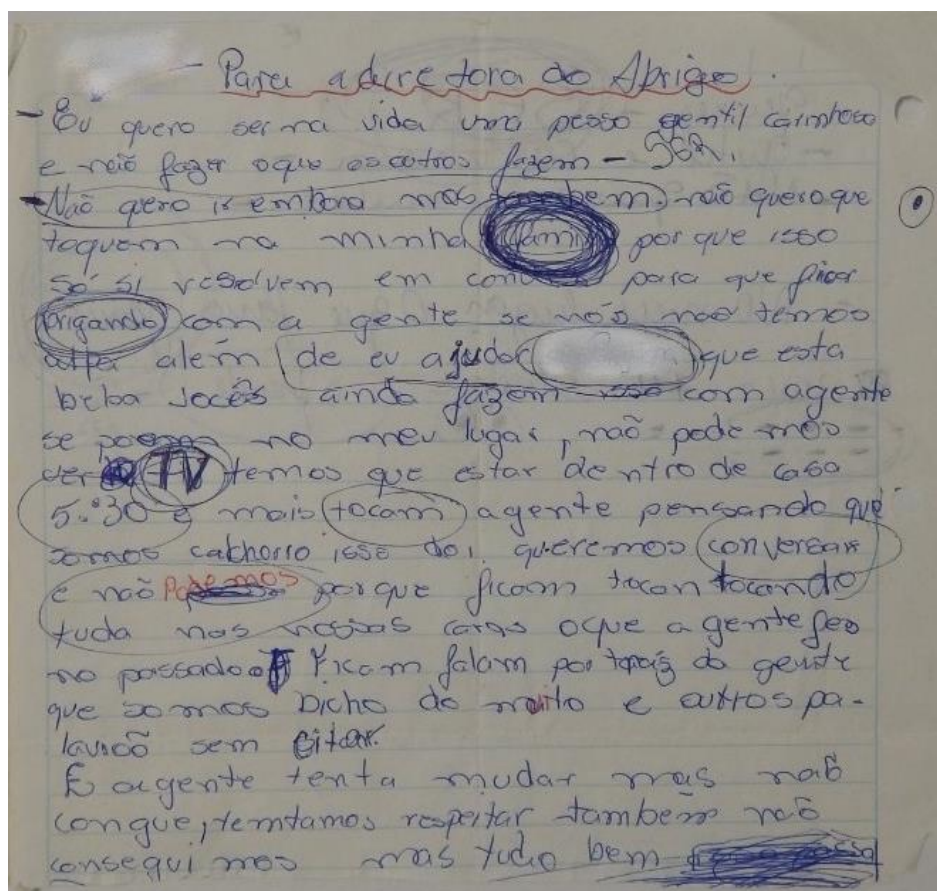 - Para a diretora do Abrigo.
- Eu quero ser na vida uma pesso gentil carinhoso
e não fazer oque os outros fazem -
- Não quero ir embora mas também não quero que
toquem na minha fami por que isso
só si resolvem em para que ficar
brigando com a gente se nós não temos
além de eu ajudar que esta
beba voces ainda fazem isso com agente
se poem no meu lugar, não pode mos
ver TV temos que estar dentro de casa
5:30 e mais tocam agente pensando que
somos cachorro isso doi, queremos conversar
e não Podemos por que ficam tocan tocando
tuda nas nossas caras oque a gente fes
no passado Ficam falam por traís da gente
que somos Bicho do mato e outros pa-
lavrão sem citar.
E agente tenta mudar mas não
congue, temtamos respeitar também não
consegui mos mas tudo bem